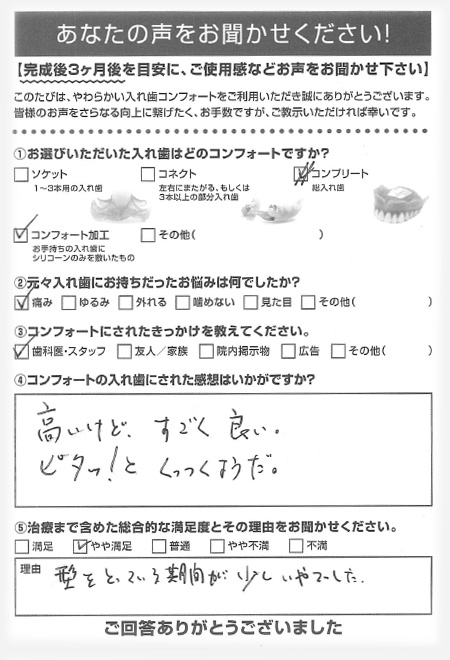 あなたの声をお聞かせください!
【完成後3ヶ月後を目安に、ご使用感などお声をお聞かせ下さい】
このたびは、やわらかい入れ歯コンフォートをご利用いただき誠にありがとうございます。
皆様のお声をさらなる向上に繋げたく、お手数ですが、ご教示いただければ幸いです。
①お選びいただいた入れ歯はどのコンフォートですか?
□ソケット
1〜3本用の入れ歯
□コネクト
左右にまたがる、もしくは
3本以上の部分入れ歯
□コンプリート
総入れ歯
☑コンフォート加工
お手持ちの入れ歯に
シリコーンのみを敷いたもの
□その他( )
②元々入れ歯にお持ちだったお悩みは何でしたか?
☑痛み □ゆるみ □外れる □噛めない □見た目 □その他( )
③コンフォートにされたきっかけを教えてください。
☑歯科医・スタッフ □友人／家族 □院内掲示物 □広告 □その他( )
④コンフォートの入れ歯にされた感想はいかがですか?
高いけど、すごく良い。
ピタッ!とくっつくようだ。
⑤治療まで含めた総合的な満足度とその理由をお聞かせください。
□満足 ☑やや満足 □普通 □やや不満 □不満
理由 型をとっている期間が少しいやでした.
ご回答ありがとうございました